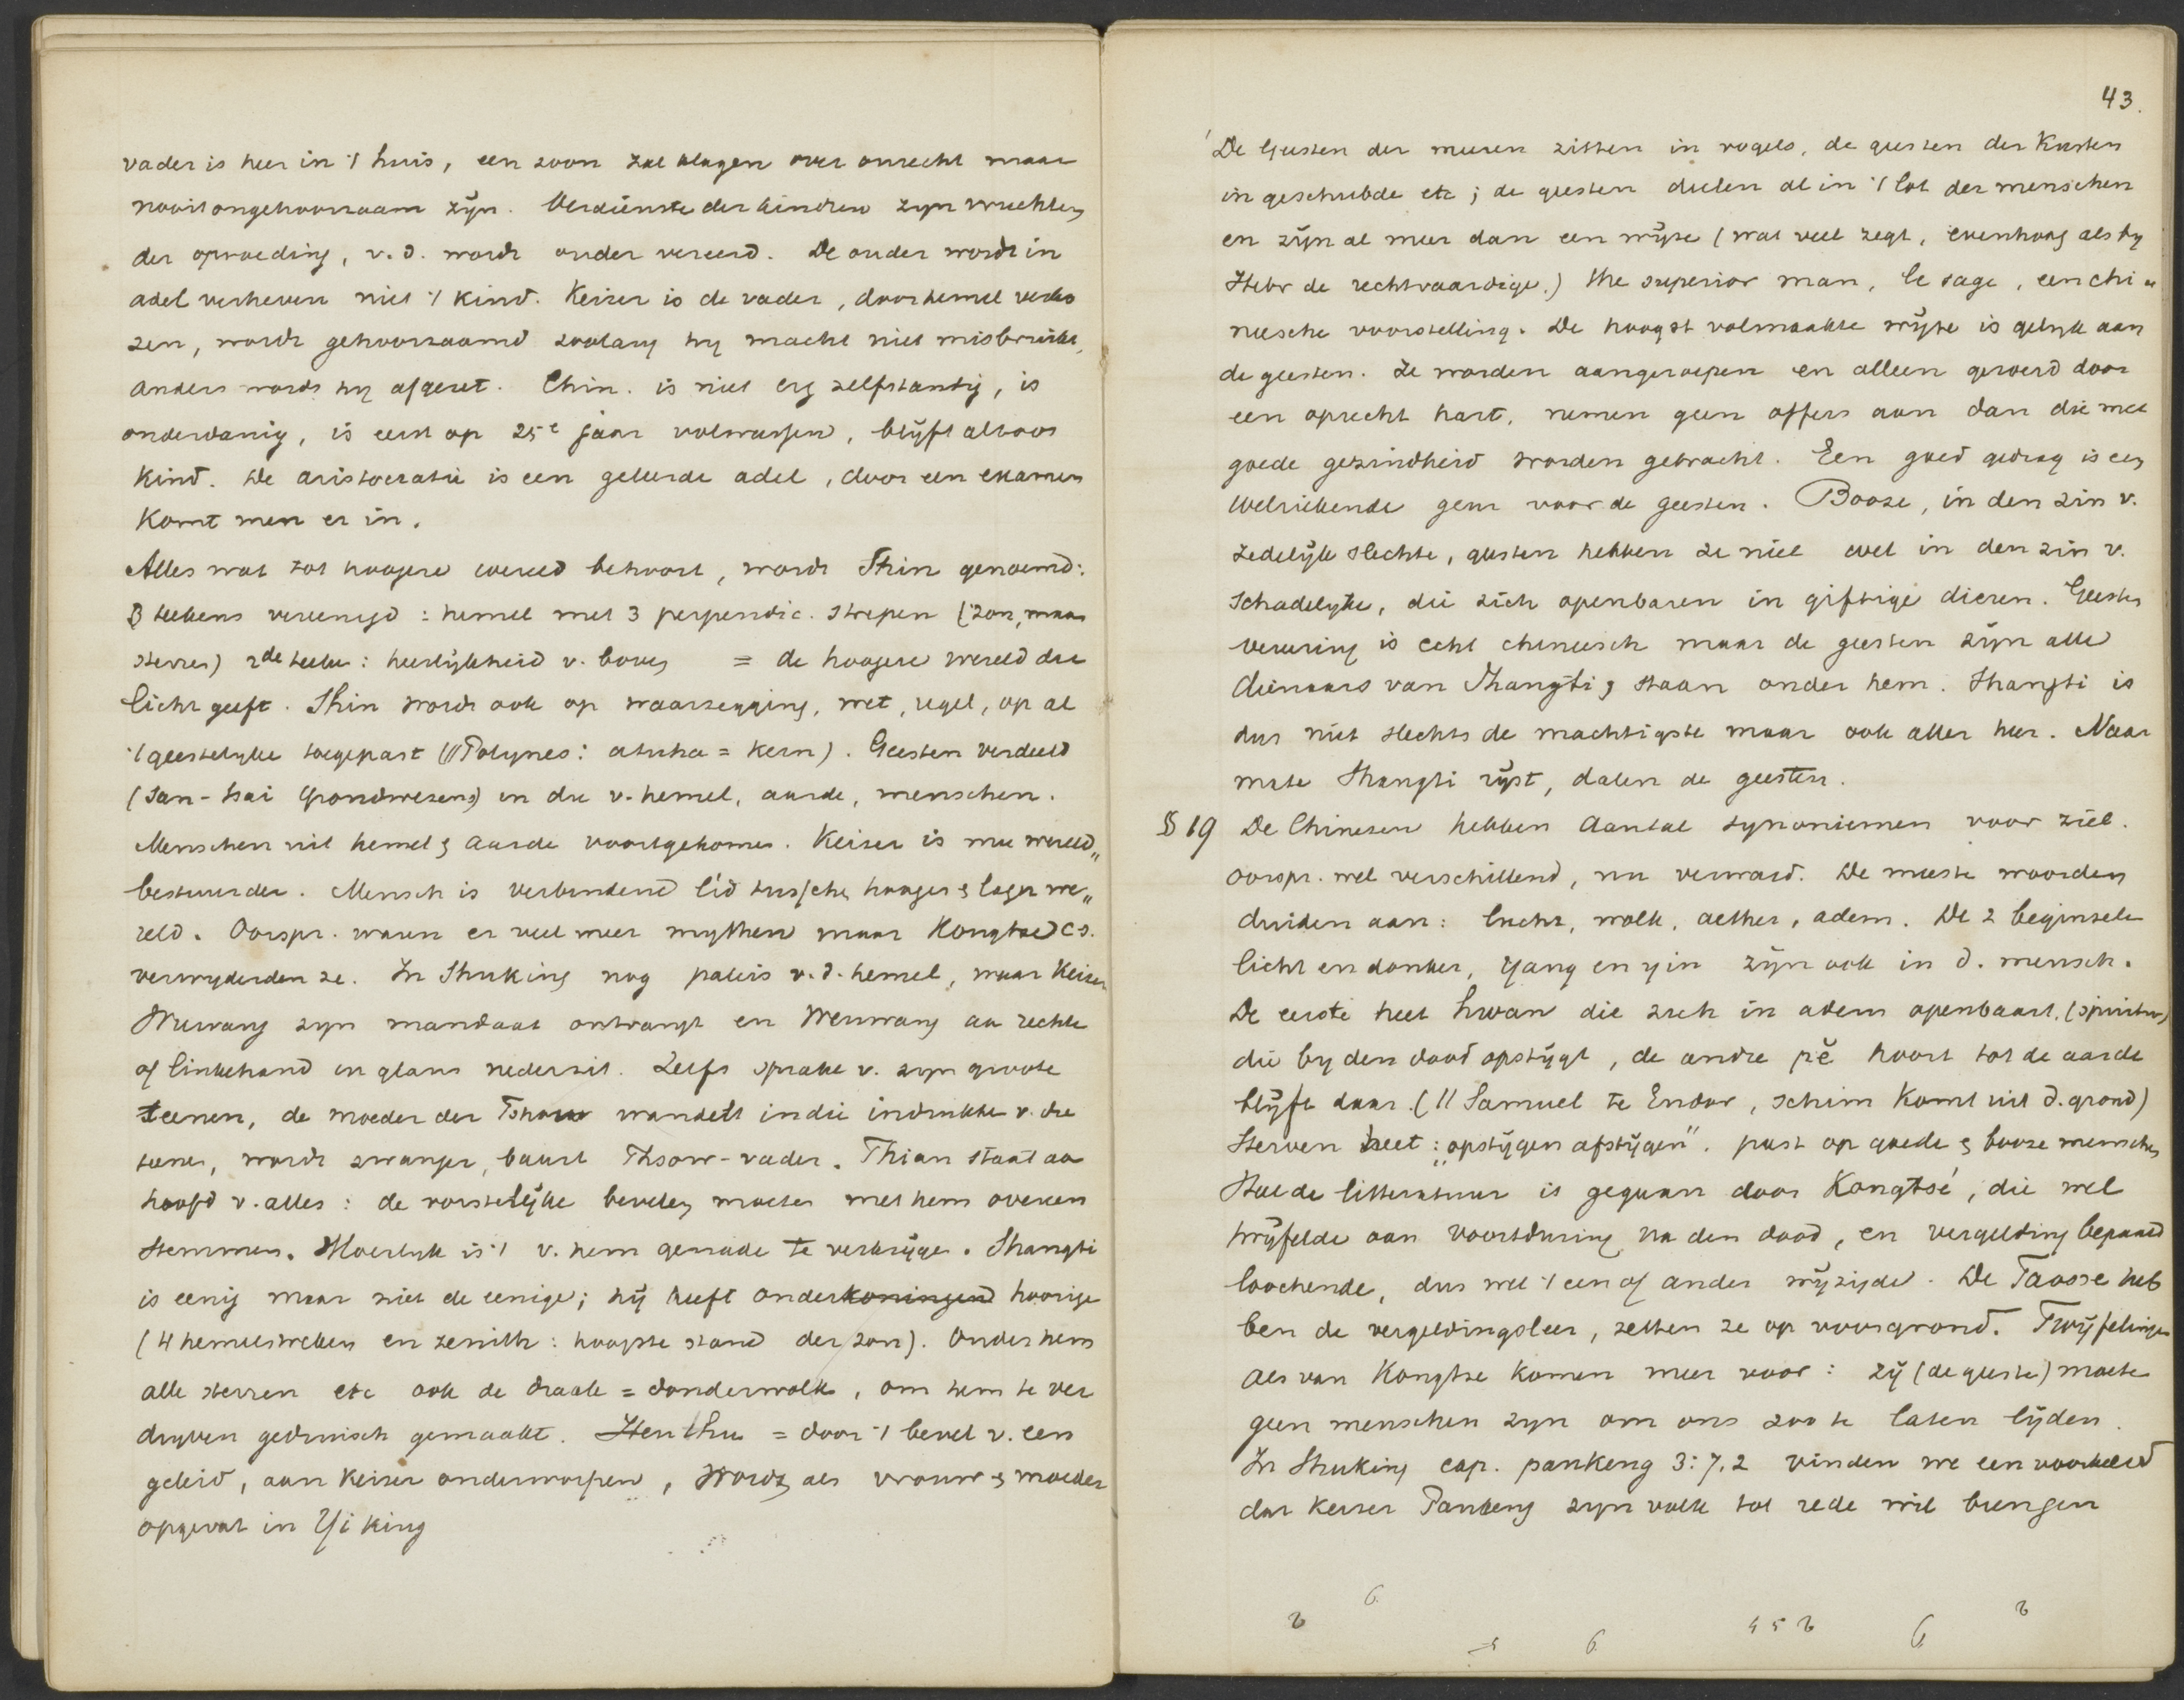 vader is heer in 't huis, een zoon zal klagen over onrecht maar
nooit ongehoorzaam zijn. Verdienste der kinderen zijn vruchten
der opvoeding, v.d. wordt ouder vereerd. De ouder wordt in
adel verheven niet 't kind. Keizer is de vader, door hemel verko
zen, wordt gehoorzaamd zoolang hy macht niet misbruikt,
anders wordt hy afgezet. Chin. is niet erg zelfstandig, is
onderdanig, is eerst op 25e jaar volwassen, blijft altoos
kind. De aristocratie is een geleerde adel, door een examen
komt men er in.
Alles wat tot hoogere wereld behoort, wordt Shin genoemd:
3 teekens vereenigd: hemel met 3 perpendic. strepen (zon, maan
sterren) 2de teeken: heerlijkheid v. boven = de hoogere wereld die
licht geeft. Shin wordt ook op waarzegging, wet, regel, op al
't geestelyke toegepast (// Polynes: atuha = kern). Geesten verdeeld
(San-tsai Grondwezens) in die v. hemel, aarde, menschen.
Menschen uit hemel & aarde voortgekomen. Keizer is mee wereld„
bestuurder. Mensch is verbindend lid tusschen hooger & lager we„
reld. Oorspr. waren er veel meer mythen maar Kongtse cs.
verwyderden ze. In Shuking nog paleis v.d. hemel, waar Keizer
Wuwang zyn mandaat ontvangt en Wenwang aan rechter
of linkerhand in glans nederzit. Zelfs sprake v. zyn groote
teenen, de moeder der Tshow wandelt in die indrukken v. die
teenen, wordt zwanger, baart Thsow-vader. Thian staat aan
hoofd v. alles: de vorstelijke bevelen moeten met hem overeen
stemmen. Moeilyk is 't v. hem genade te verkrijgen. Shangti
is eenig maar niet de eenige; hij heeft onderkoningen hoorige
(4 hemelstreken en zenith: hoogste stand der zon). Onder hem
alle sterren etc ook de draak = donderwolk, om hem te ver
dryven gedruisch gemaakt. Hen thu = door 't bevel v. een
geleid, aan keizer onderworpen, Wordt als vrouw & moeder
opgevat in Yi king
43.
De Geesten der meeren zitten in vogels, de geesten der kusten
in geschubde etc; de geesten deelen al in 't lot der menschen
en zijn al meer dan een wijze (wat veel zegt, evenhoog als by
Hebr de rechtvaardige.) the superior man, le sage, een chi„
neesche voorstelling. De hoogst volmaakte wijze is gelyk aan
de geesten. Ze worden aangeroepen en alleen geroerd door
een oprecht hart, nemen geen offers aan dan die met
goede gezindheid worden gebracht. Een goed gedrag is een
welriekende geur voor de geesten. Booze, in den zin v.
zedelijk slechte, geesten hebben ze niet wel in den zin v.
schadelyke, die zich openbaren in giftige dieren. Geesten
vereering is echt chineesch maar de geesten zijn alle
dienaars van Shangti & staan onder hem. Shangti is
dus niet slechts de machtigste maar ook aller heer. Naar
mate Shangti rijst, dalen de geesten.
§ 19 De Chinezen hebben aantal synoniemen voor ziel.
oorspr. wel verschillend, nu verward. De meeste woorden
duiden aan: lucht, wolk, aether, adem. De 2 beginselen
licht en donker, yang en yin zijn ook in d. mensch.
De eerste heet hwan die zich in adem openbaart, (spiritus)
die by den dood opstijgt, de andre pĕ hoort tot de aarde
blijft daar. (// Samuel te Endor, schim komt uit d. grond)
Sterven heet: „opstijgen afstijgen". past op goede & booze menschen
Heel de litteratuur is gegaan door Kongtsé, die wel
twijfelde aan voortduring na den dood, en vergelding bepaald
loochende, dus wel 't een of ander wijzigde. De Taosse heb
ben de vergeldingsleer, zetten ze op voorgrond. Twijfelingen
als van Kongtse komen meer voor: zij (de geesten) moeten
geen menschen zyn om ons zoo te laten lijden.
In Shuking cap. pankeng 3:7,2 vinden we een voorbeeld
dat Keizer Pankeng zyn volk tot rede wil brengen